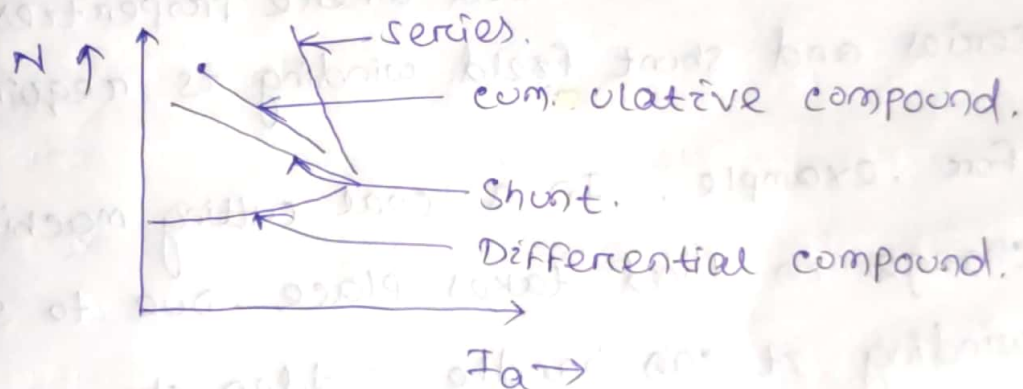 N ↑
series.
cum. ulative compound.
Shunt.
Differential compound.
Ia →